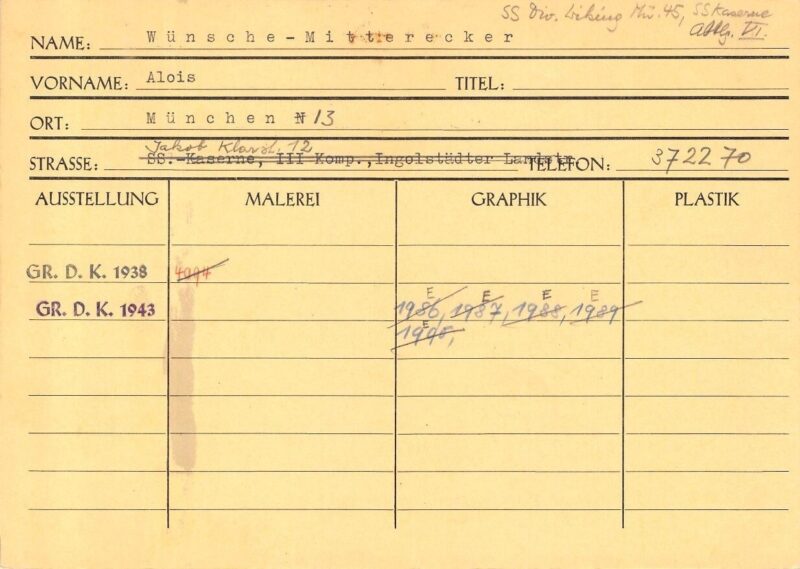 SS Div. Wiking Mü. 45, SS Kaserne
Abtlg. VI.
NAME: Wünsche-Mitterecker
VORNAME: Alois TITEL:
ORT: München N 13
Jakob Klarstr. 12
STRASSE: SS.-Kaserne, III Komp., Ingolstädter Landstr. TELEFON: 37 22 70
AUSSTELLUNG MALEREI GRAPHIK PLASTIK
GR. D. K. 1938 4094
E E E E
GR. D. K. 1943 1986, 1987, 1988, 1989
E